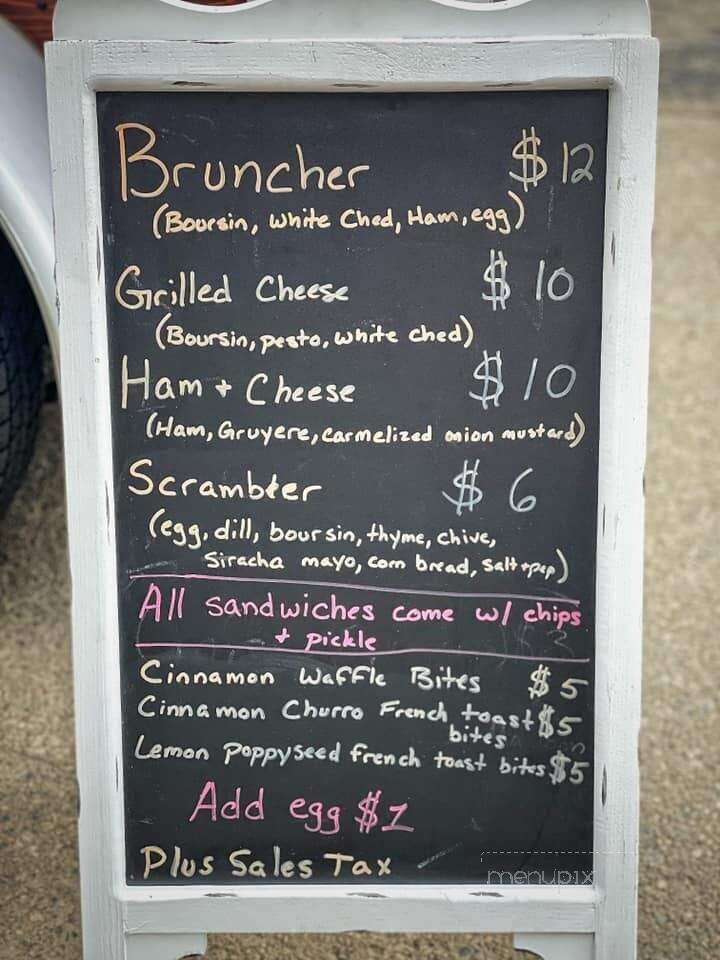 Bruncher $12
(Boursin, white Ched, Ham, egg)
Grilled Cheese $10
(Boursin, pesto, white ched)
Ham + Cheese $10
(Ham, Gruyere, carmelized onion mustard)
Scrambler $6
(egg, dill, boursin, thyme, chive,
Siracha mayo, corn bread, salt + pep)
All sandwiches come w/ chips
+ pickle
Cinnamon Waffle Bites $5
Cinnamon Churro French toast $5
bites
Lemon Poppyseed french toast bites $5
Add egg $1
Plus Sales Tax
menupix